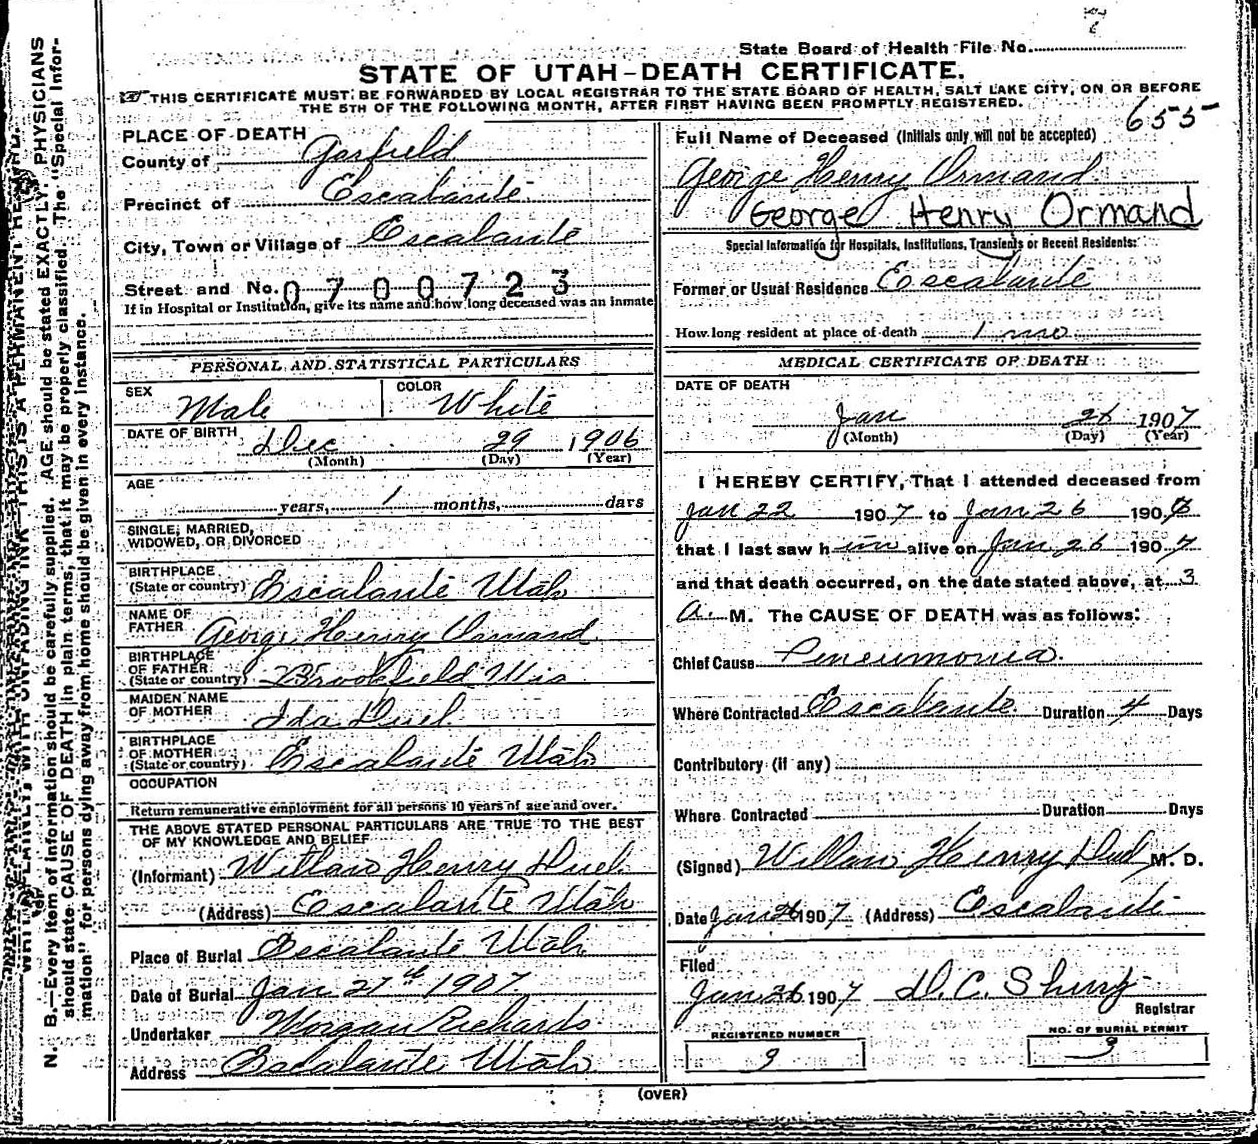 State Board of Health File No.
STATE OF UTAH—DEATH CERTIFICATE.
THIS CERTIFICATE MUST BE FORWARDED BY LOCAL REGISTRAR TO THE STATE BOARD OF HEALTH, SALT LAKE CITY, ON OR BEFORE
THE 5TH OF THE FOLLOWING MONTH, AFTER FIRST HAVING BEEN PROMPTLY REGISTERED.
655
PLACE OF DEATH
County of Garfield
Precinct of Escalante
City, Town or Village of Escalante
Street and No. 0700723
If in Hospital or Institution, give its name and how long deceased was an inmate
PERSONAL AND STATISTICAL PARTICULARS
SEX Male COLOR White
DATE OF BIRTH Dec 29 1906
(Month) (Day) (Year)
AGE
years, 1 months, days
SINGLE, MARRIED,
WIDOWED, OR DIVORCED
BIRTHPLACE
(State or country) Escalante Utah
NAME OF
FATHER George Henry Ormand
BIRTHPLACE
OF FATHER
(State or country) Brookfield Wis
MAIDEN NAME
OF MOTHER Ida Duel
BIRTHPLACE
OF MOTHER
(State or country) Escalante Utah
OCCUPATION
Return remunerative employment for all persons 10 years of age and over.
THE ABOVE STATED PERSONAL PARTICULARS ARE TRUE TO THE BEST
OF MY KNOWLEDGE AND BELIEF
(Informant) Henry Duel
(Address) Escalante Utah
Place of Burial Escalante Utah
Date of Burial Jan 27th 1907
Undertaker Morgan Richards
Address Escalante Utah
Full Name of Deceased (Initials only will not be accepted)
George Henry Ormand
George Henry Ormand
Special Information for Hospitals, Institutions, Transients or Recent Residents:
Former or Usual Residence Escalante
How long resident at place of death 1 mo
MEDICAL CERTIFICATE OF DEATH
DATE OF DEATH
Jan 26 1907
(Month) (Day) (Year)
I HEREBY CERTIFY, That I attended deceased from
Jan 22 1907 to Jan 26 190
that I last saw him alive on Jan 26 1907
and that death occurred, on the date stated above, at 3
a. M. The CAUSE OF DEATH was as follows:
Chief Cause Pneumonia
Where Contracted Escalante Duration 4 Days
Contributory (if any)
Where Contracted Duration Days
(Signed) Henry Duel M. D.
Date Jan 26 1907 (Address) Escalante
Filed
Jan 26 1907 D. C. Shurtz
Registrar
REGISTERED NUMBER
9
NO. OF BURIAL PERMIT
9
(OVER)
N. B.—Every item of information should be carefully supplied. AGE should be stated EXACTLY. PHYSICIANS
should state CAUSE OF DEATH in plain terms, that it may be properly classified. The "Special Infor-
mation" for persons dying away from home should be given in every instance.